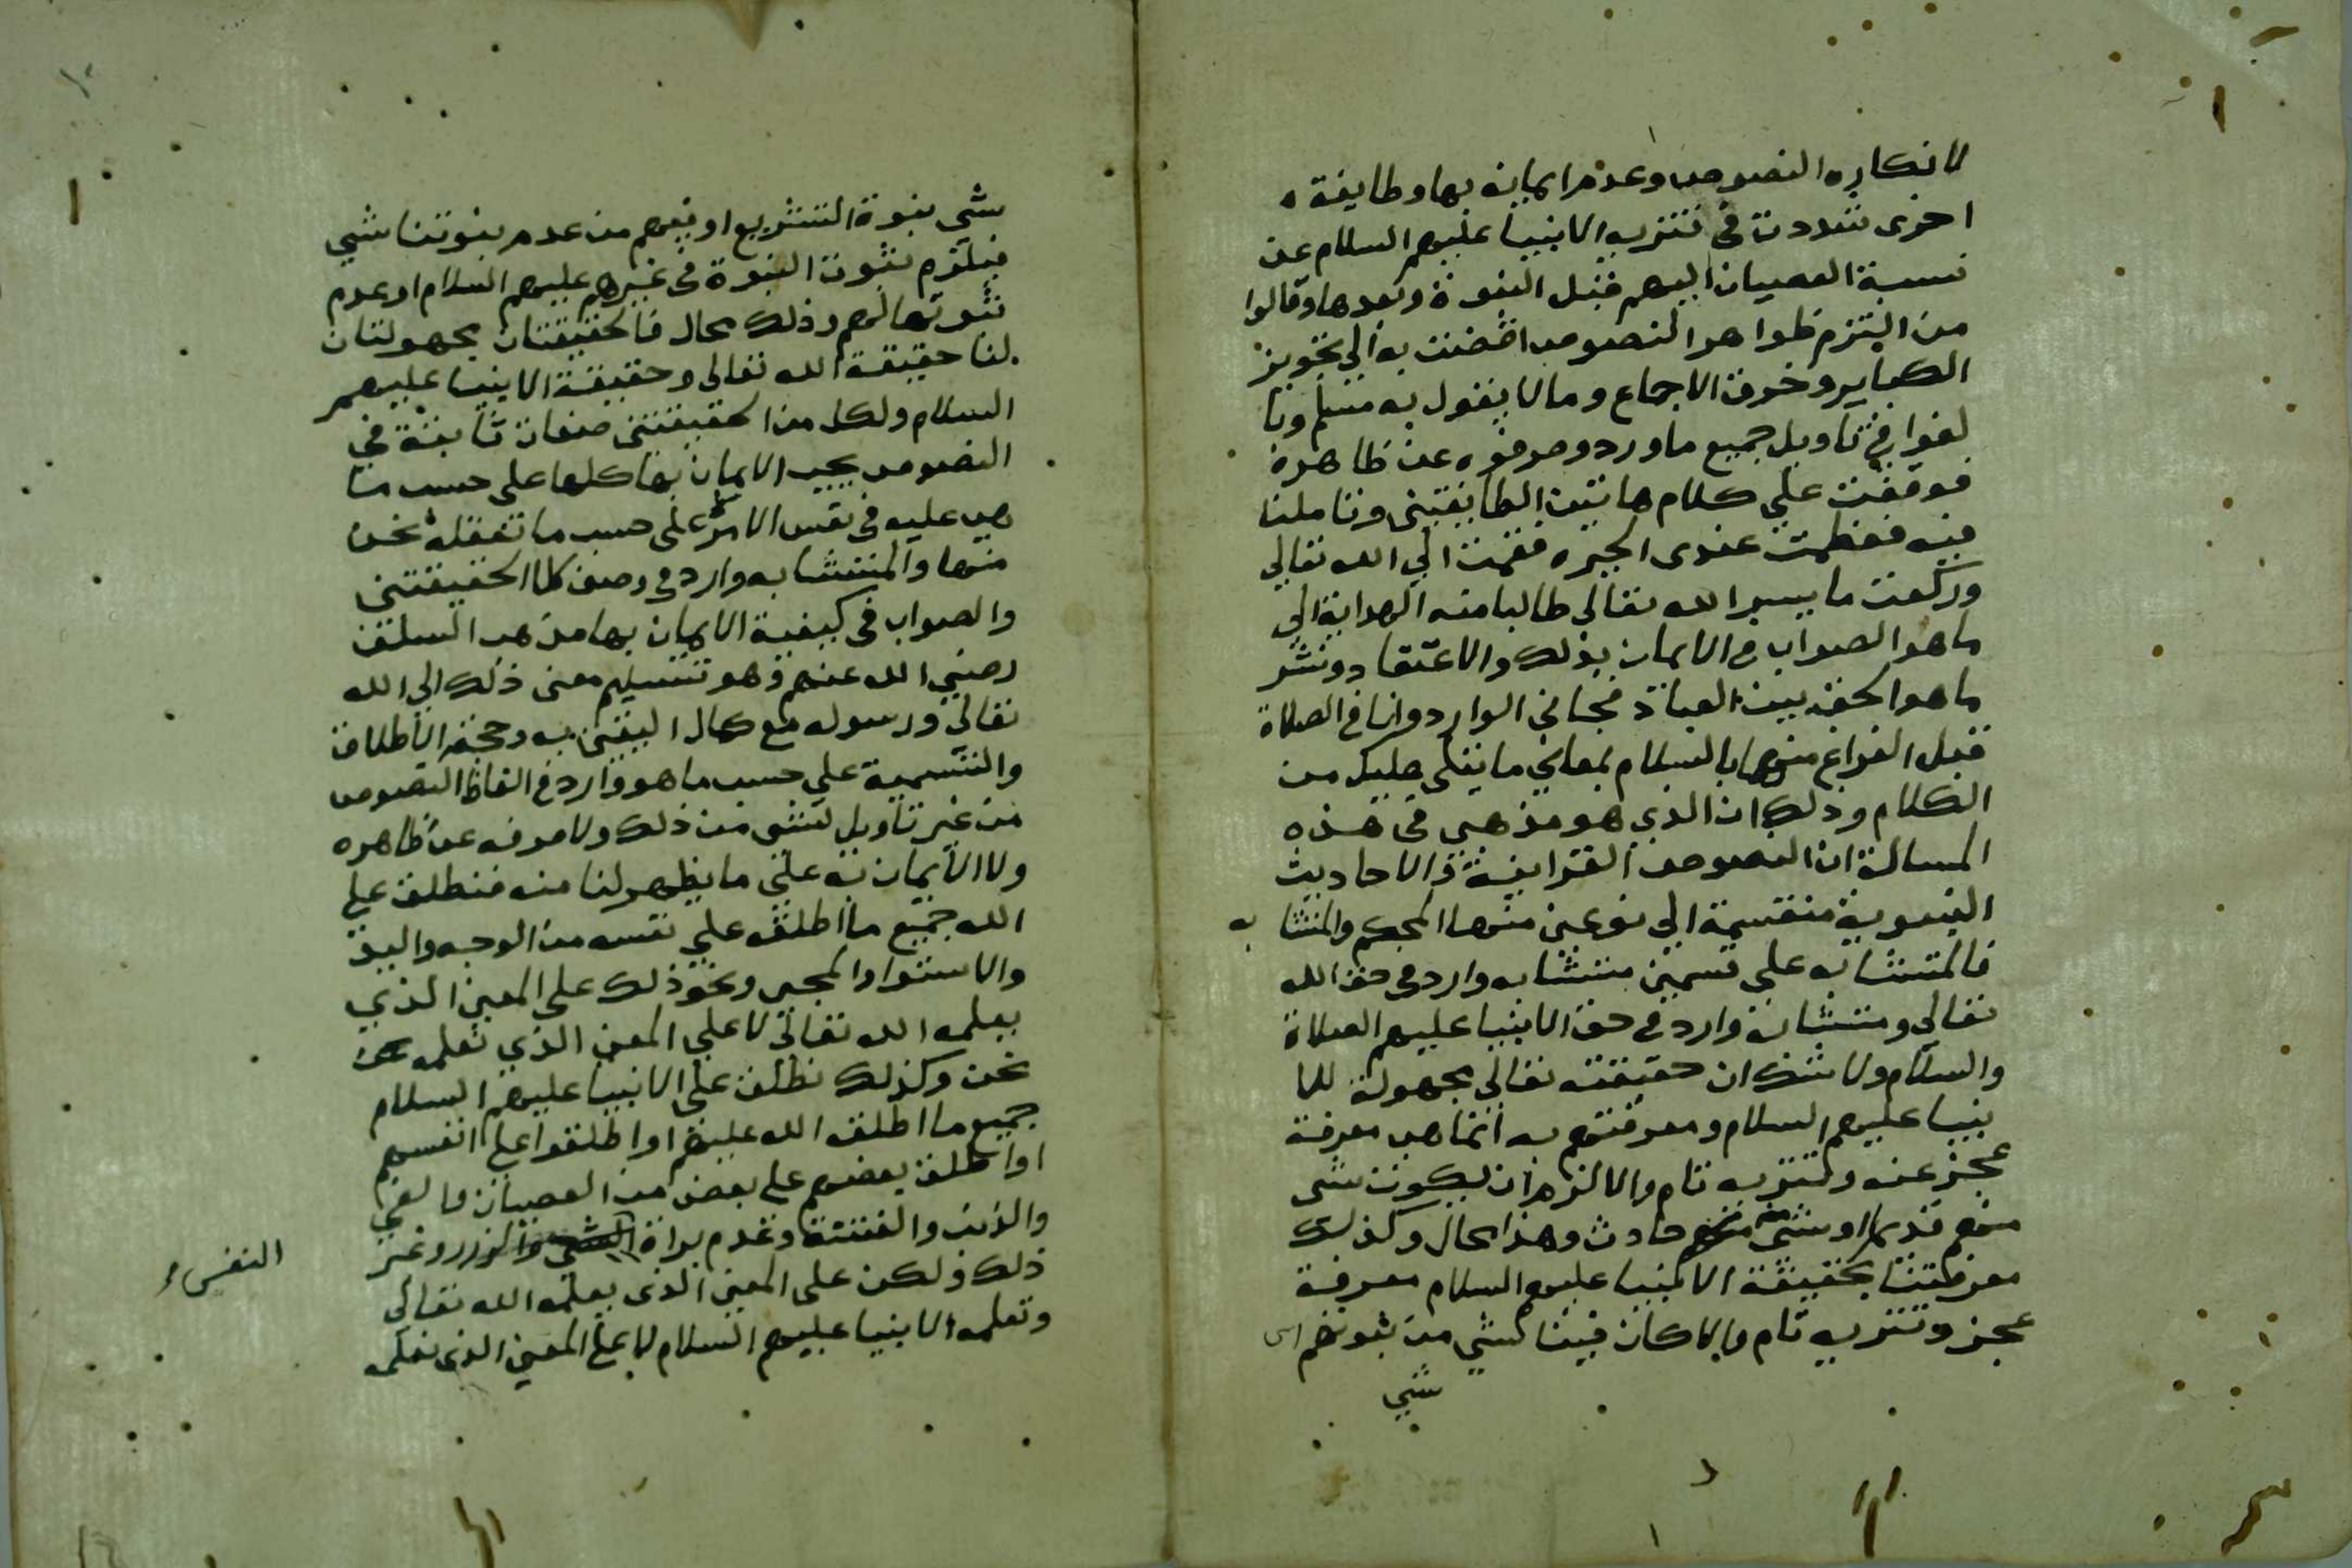 لانكاره النصوص وعدم ايمانه بها وطايفة
اخرى شددت في تنزيه الانبيا عليهم السلام عن
نسبة العصيان اليهم قبل النبوة وبعدها وقالوا
من التزم ظواهر النصوص افضت به الي تجويز
الكباير وخرق الاجماع وما لا يقول به مسلم وبا
لغوا في تاويل جميع ما ورد وصرفوه عن ظاهره
فوقفت علي كلام هاتين الطايفتين وتاملنا
فيه فعظمت عندى الحيره فقمت الي الله تعالي
وركعت ما يسر الله تعالى طالبا منه الهداية الي
ما هو الصواب في الايمان بذلك والاعتقاد ونشر
ما هو الحق بين العباد فجاني الوارد وانا في الصلاة
قبل الفراغ منها بالسلام بمعاني ما يتلى عليك من
الكلام وذلك ان الذي هو مذهبي في هذه
المسالة ان النصوص القرانية والاحاديث
النبوية منقسمة الي نوعين منها المحكم والمتشا به
فالمتشابه علي قسمين متشابه وارد في حق الله
تعالي ومتشابه وارد في حق الانبيا عليهم الصلاة
والسلام ولا شك ان حقيقته تعالي مجهولة للا
نبيا عليهم السلام ومعرفتهم به انما هي معرفة
عجز عنه وتنزيه تام والا لزم ان يكون شى
منهم قديما او شى منه حادث وهذا محال وكذلك
معرفتنا بحقيقة الانبيا عليهم السلام معرفة
عجز وتنزيه تام والا كان فينا شي من نبوتهم اى
شي
بشي نبوة التشريع او فيهم من عدم نبوتنا شي
فيلزم ثبوت النبوة في غيرهم عليهم السلام او عدم
ثبوتها لهم وذلك محال فالحقيقتان مجهولتان
لنا حقيقة الله تعالى وحقيقة الانبيا عليهم
السلام ولكل من الحقيقتين صفات ثابتة في
النصوص يجب الايمان بها كلها على حسب ما
هي عليه في نفس الامر لا على حسب ما تعقله نحن
منها والمتشابه وارد في وصف كلا الحقيقتين
والصواب في كيفية الايمان بها مذهب السلف
رضي الله عنهم وهو تسليم معنى ذلك الي الله
تعالى ورسوله مع كمال اليقين به وصحة الاطلاق
والتسمية علي حسب ما هو وارد في الفاظ النصوص
من غير تاويل لشى من ذلك ولا صرفه عن ظاهره
ولا الايمان به علي ما يظهر لنا منه فنطلق علي
الله جميع ما اطلقه علي نفسه من الوجه واليد
والاستوا والمجى ونحو ذلك على المعنى الذي
يعلمه الله تعالى لا علي المعنى الذي نعلمه
نحن وكذلك نطلق على الانبيا عليهم السلام
جميع ما اطلق الله عليهم او اطلقوا علي انفسهم
او اطلق بعضهم علي بعض من العصيان والغي
والذنب والفتنة وعدم براة والوزر وغير
النفس
ذلك ولكن على المعنى الذى يعلمه الله تعالى
وتعلمه الانبيا عليهم السلام لا على المعنى الذى نعلمه